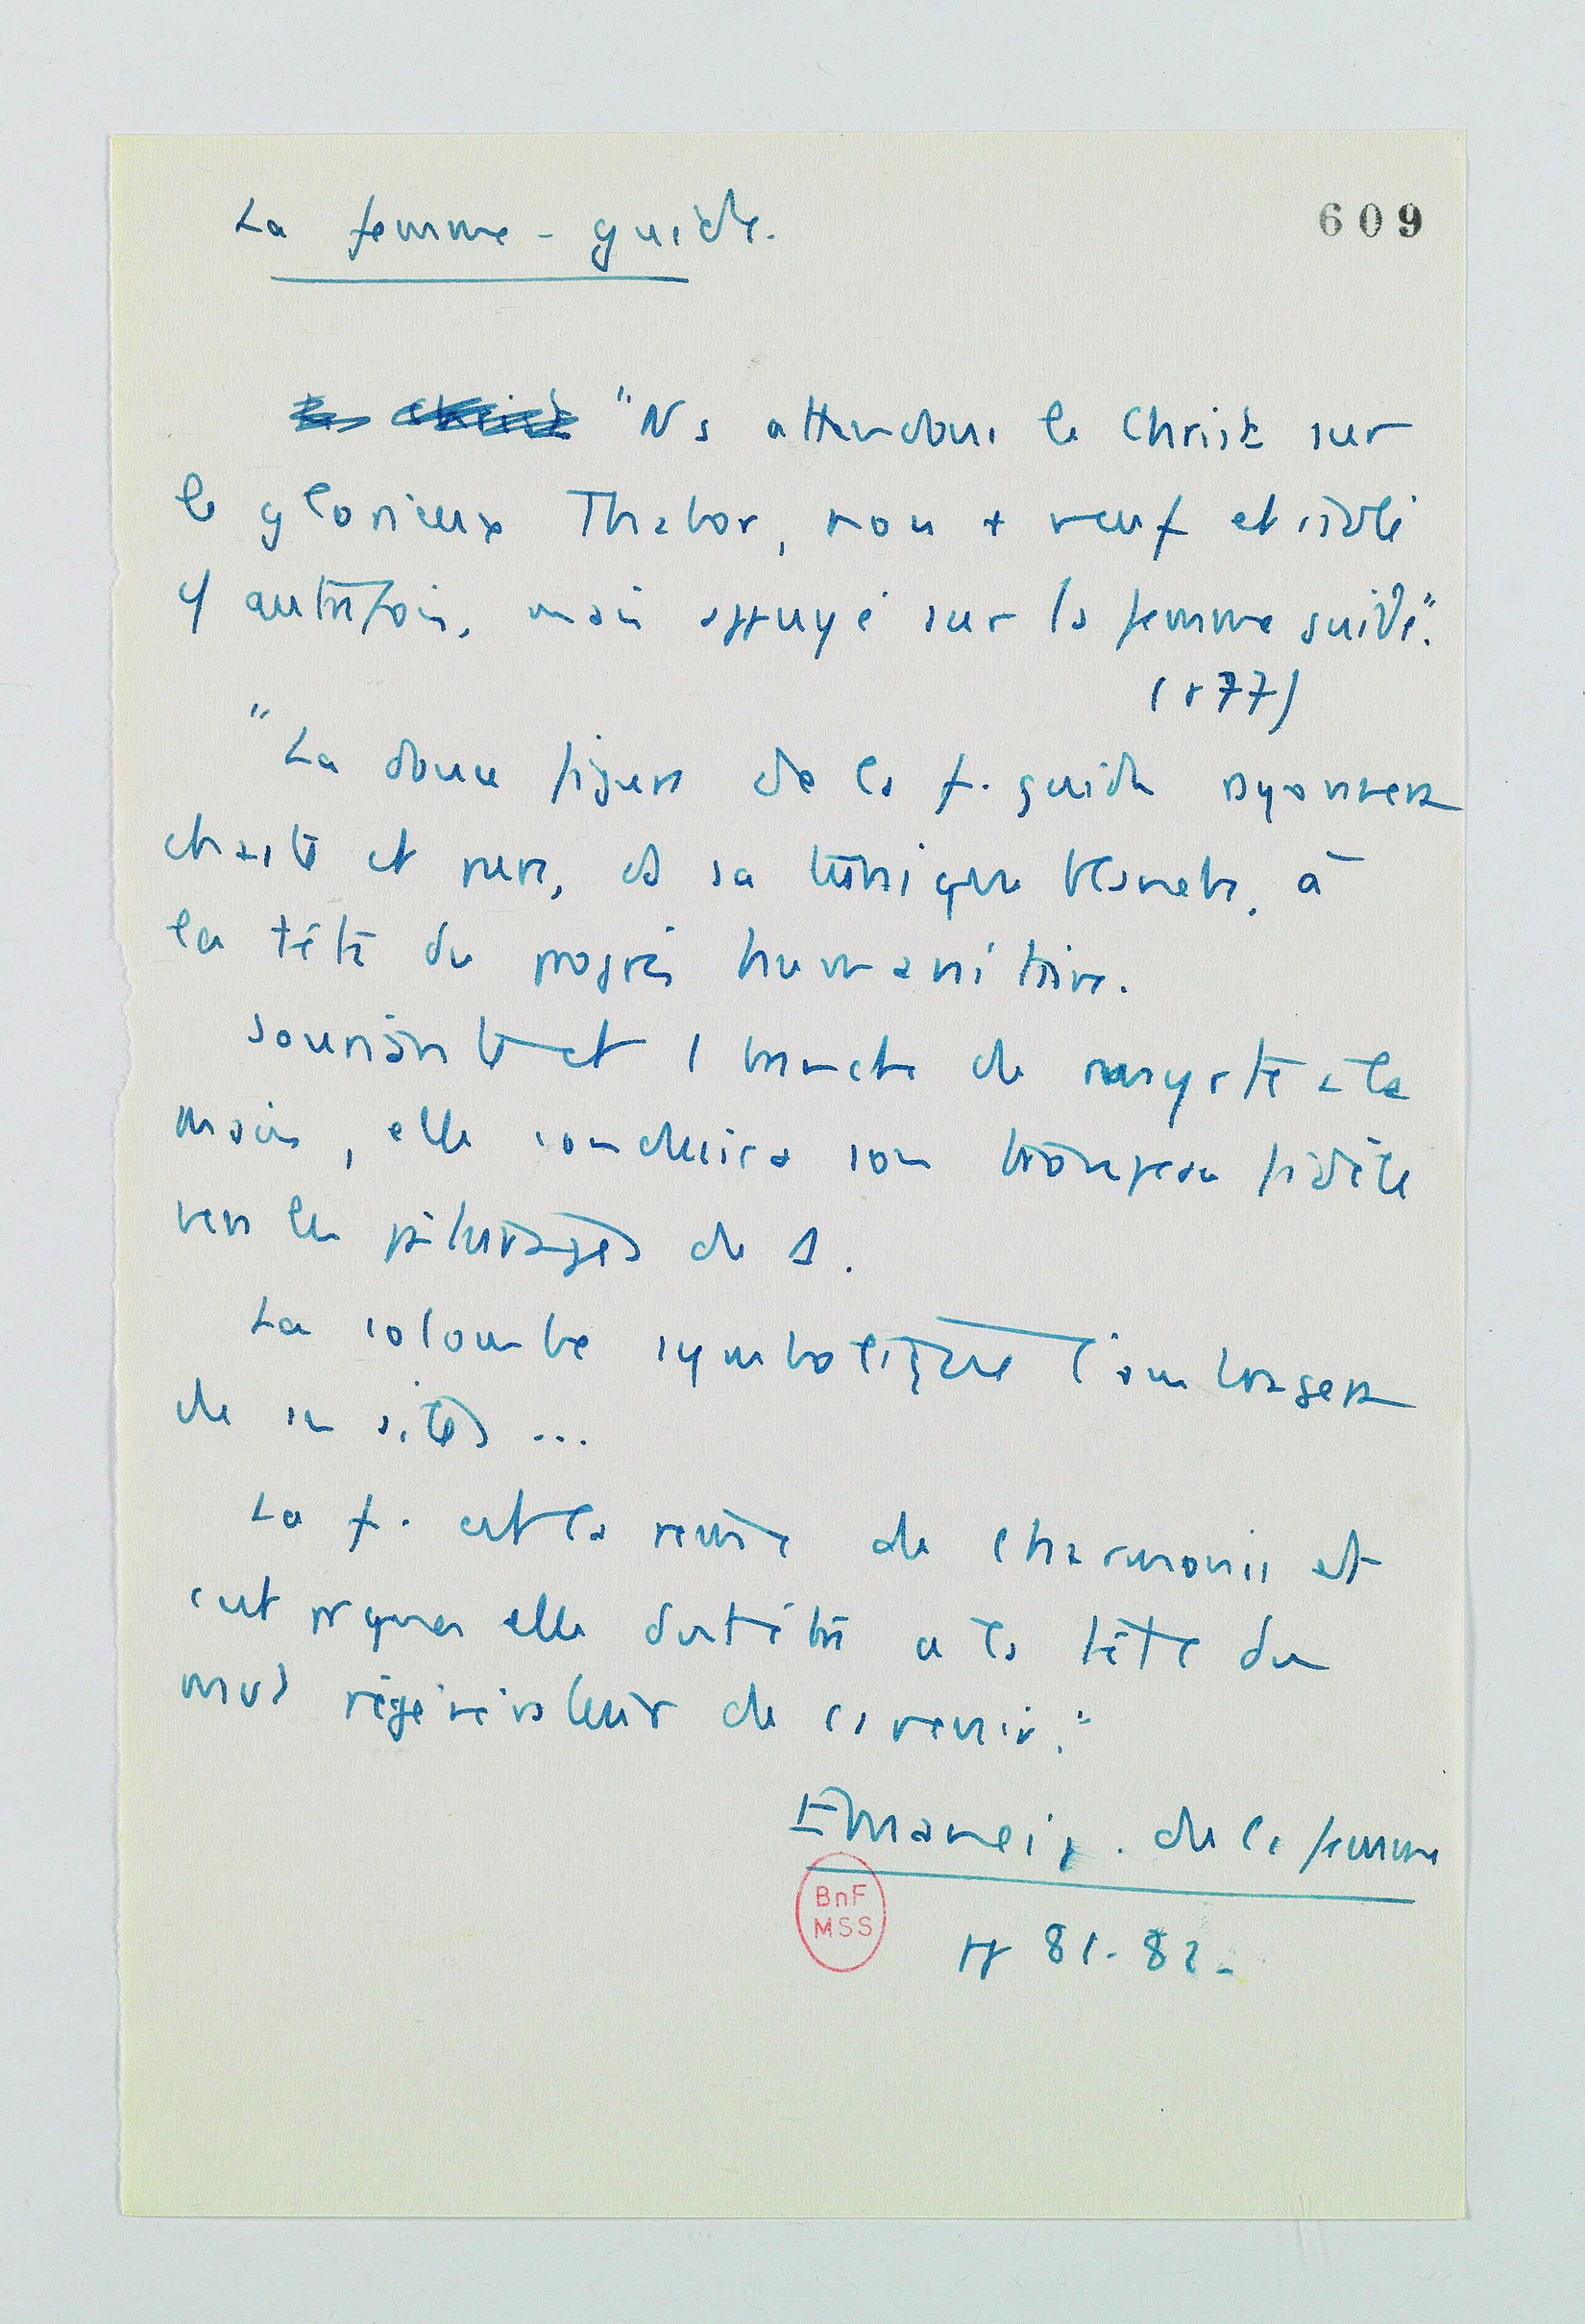 La femme-guide.
609
"Ns attendons le Christ sur
le glorieux Thabor, non + veuf et isolé
autrefois, mais appuyé sur la femme guide".
(1877)
"La douce figure de la f. guide rayonnera
chaste et pure, ds sa tunique blanche, à
la tête du progrès humanitaire.
Souriante et 1 branche de myrte à la
main, elle conduira son troupeau fidèle
vers les pâturages de
La colombe symbolique l'ombragera
de ses ailes ...
La f. est la reine de l'harmonie et
c'est pquoi elle doit être à la tête du
mvt régénérateur de l'avenir."
Emancip. de la femme
pp 81-82-
BnF
MSS